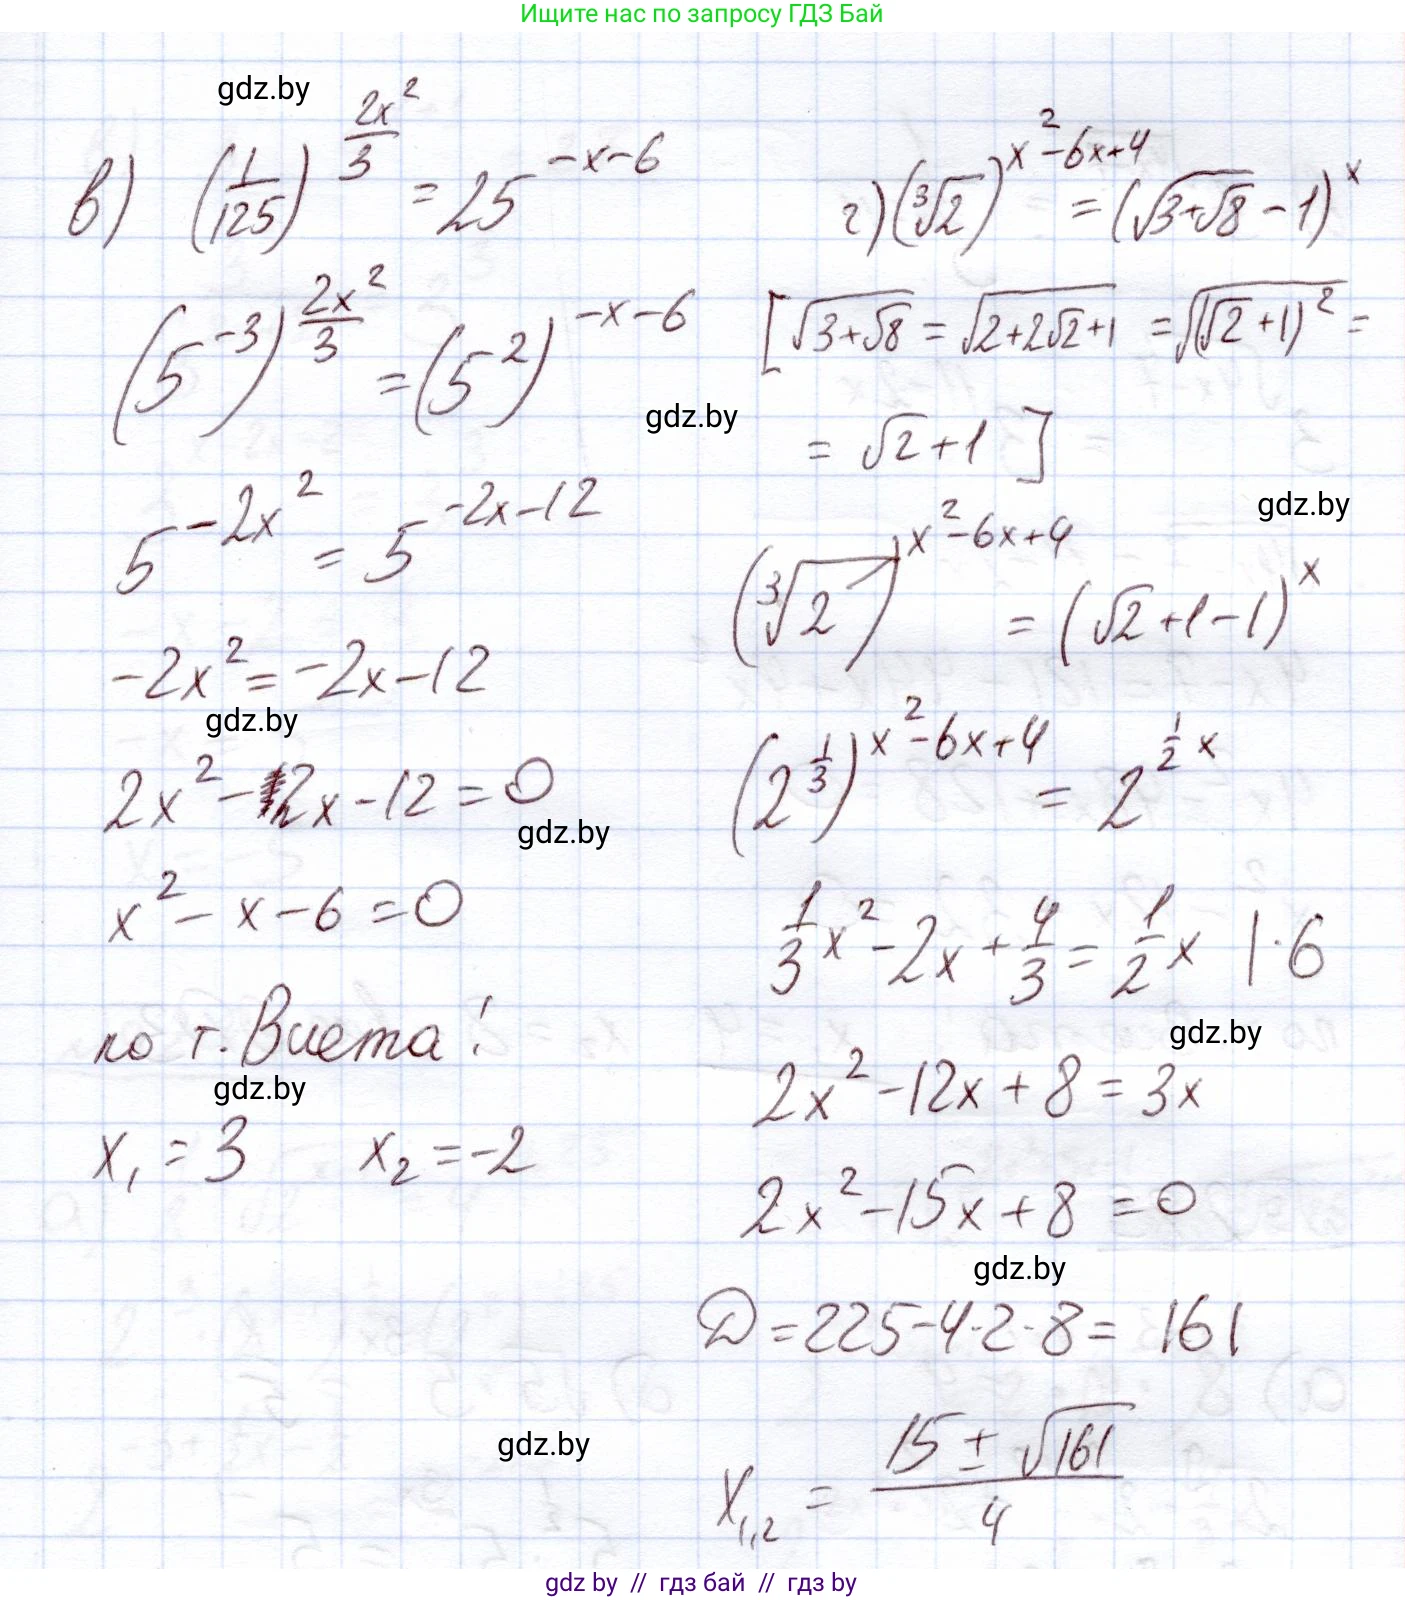 Ищите нас по запросу ГДЗ Бай
gdz.by
в) (1/125)^(2x²/3) = 25^(-x-6)
(5^(-3))^(2x²/3) = (5²)^(-x-6)
gdz.by
5^(-2x²) = 5^(-2x-12)
-2x² = -2x-12
gdz.by
2x² - 2x - 12 = 0
gdz.by
x² - x - 6 = 0
по т. Виета:
gdz.by
x₁ = 3 x₂ = -2
г) (∛2)^(x²-6x+4) = (√(3+√8) - 1)^x
[√(3+√8) = √(2+2√2+1) = √((√2+1)²) =
= √2+1]
gdz.by
(∛2)^(x²-6x+4) = (√2+1-1)^x
(2^(1/3))^(x²-6x+4) = 2^(1/2 x)
1/3 x² - 2x + 4/3 = 1/2 x |·6
gdz.by
2x² - 12x + 8 = 3x
2x² - 15x + 8 = 0
gdz.by
D = 225 - 4·2·8 = 161
gdz.by
x₁,₂ = (15 ± √161)/4
gdz by // гдз бай // гдз by